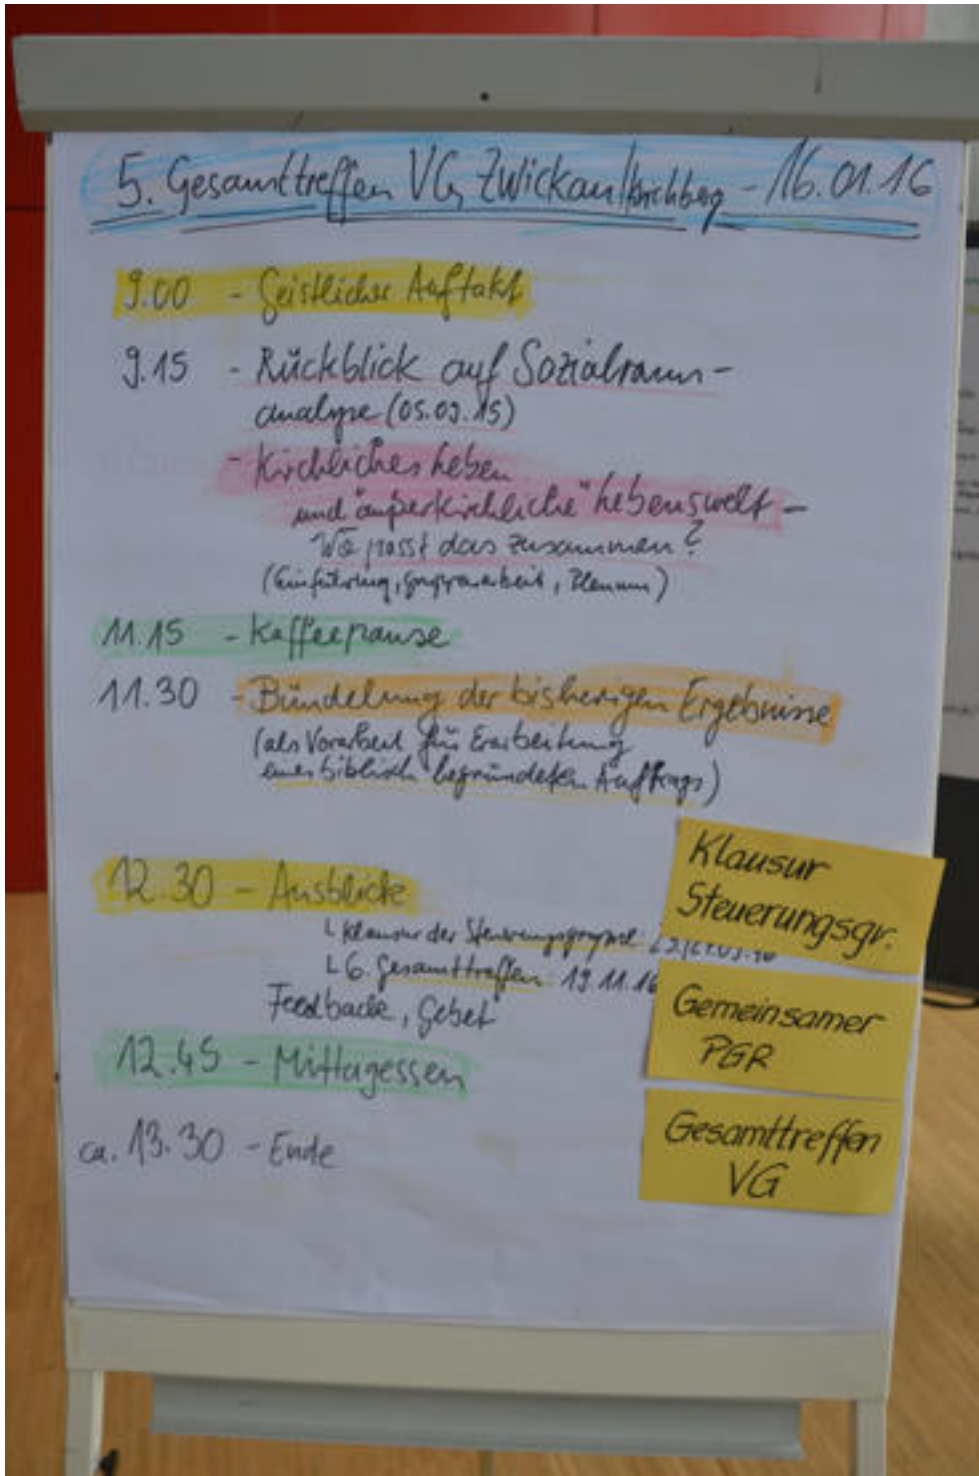 5. Gesamttreffen VG Zwickau/Kirchberg - 16.01.16
9.00 - Geistlicher Auftakt
9.15 - Rückblick auf Sozialraum-
analyse (05.09.15)
- Kirchliches Leben
und "außerkirchliche" Lebenswelt -
Wo passt das zusammen?
(Einführung, Gruppenarbeit, Plenum)
11.15 - Kaffeepause
11.30 - Bündelung der bisherigen Ergebnisse
(als Vorarbeit für Erarbeitung
eines biblisch begründeten Auftrags)
12.30 - Ausblicke
L Klausur der Steuerungsgruppe:
L 6. Gesamttreffen: 19.11.16
Feedback, Gebet
12.45 - Mittagessen
ca. 13.30 - Ende
Klausur
Steuerungsgr.
Gemeinsamer
PGR
Gesamttreffen
VG